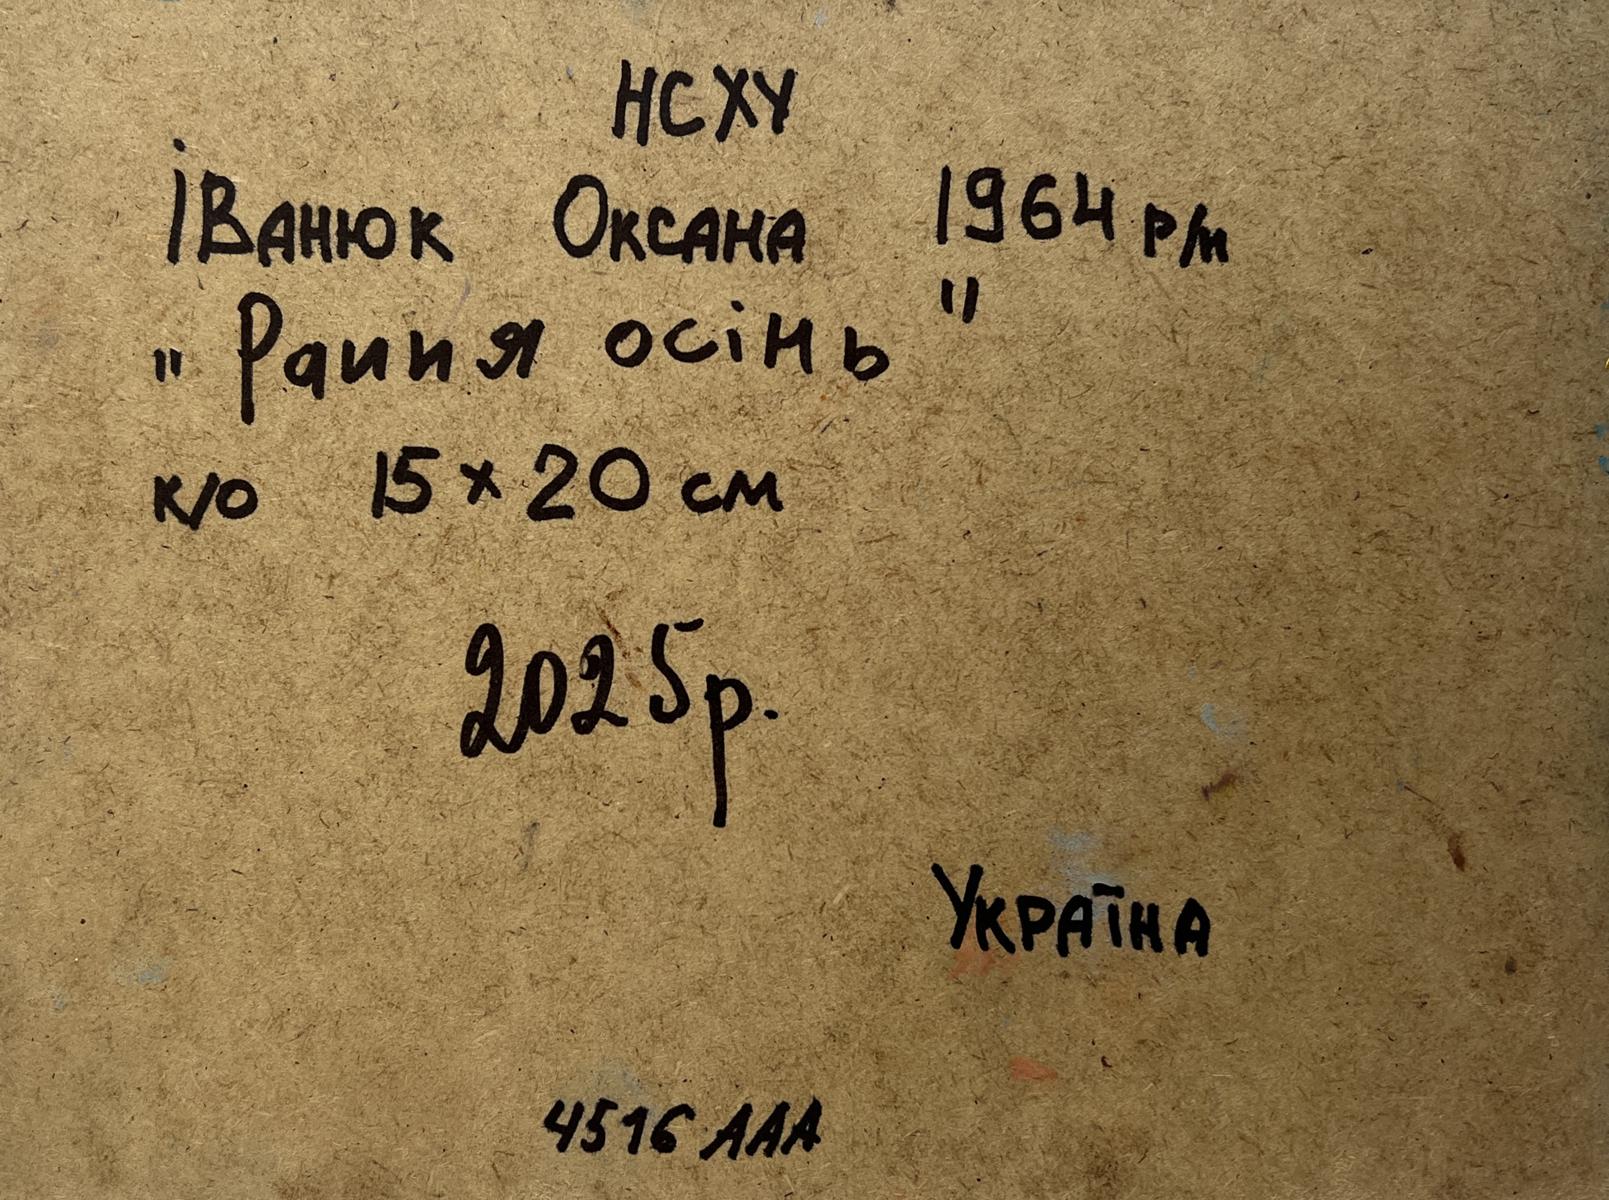 НСХУ
Іванюк Оксана 1964 р/н
„Рання осінь"
к/о 15×20 см
2025р.
Україна
4516 AAA